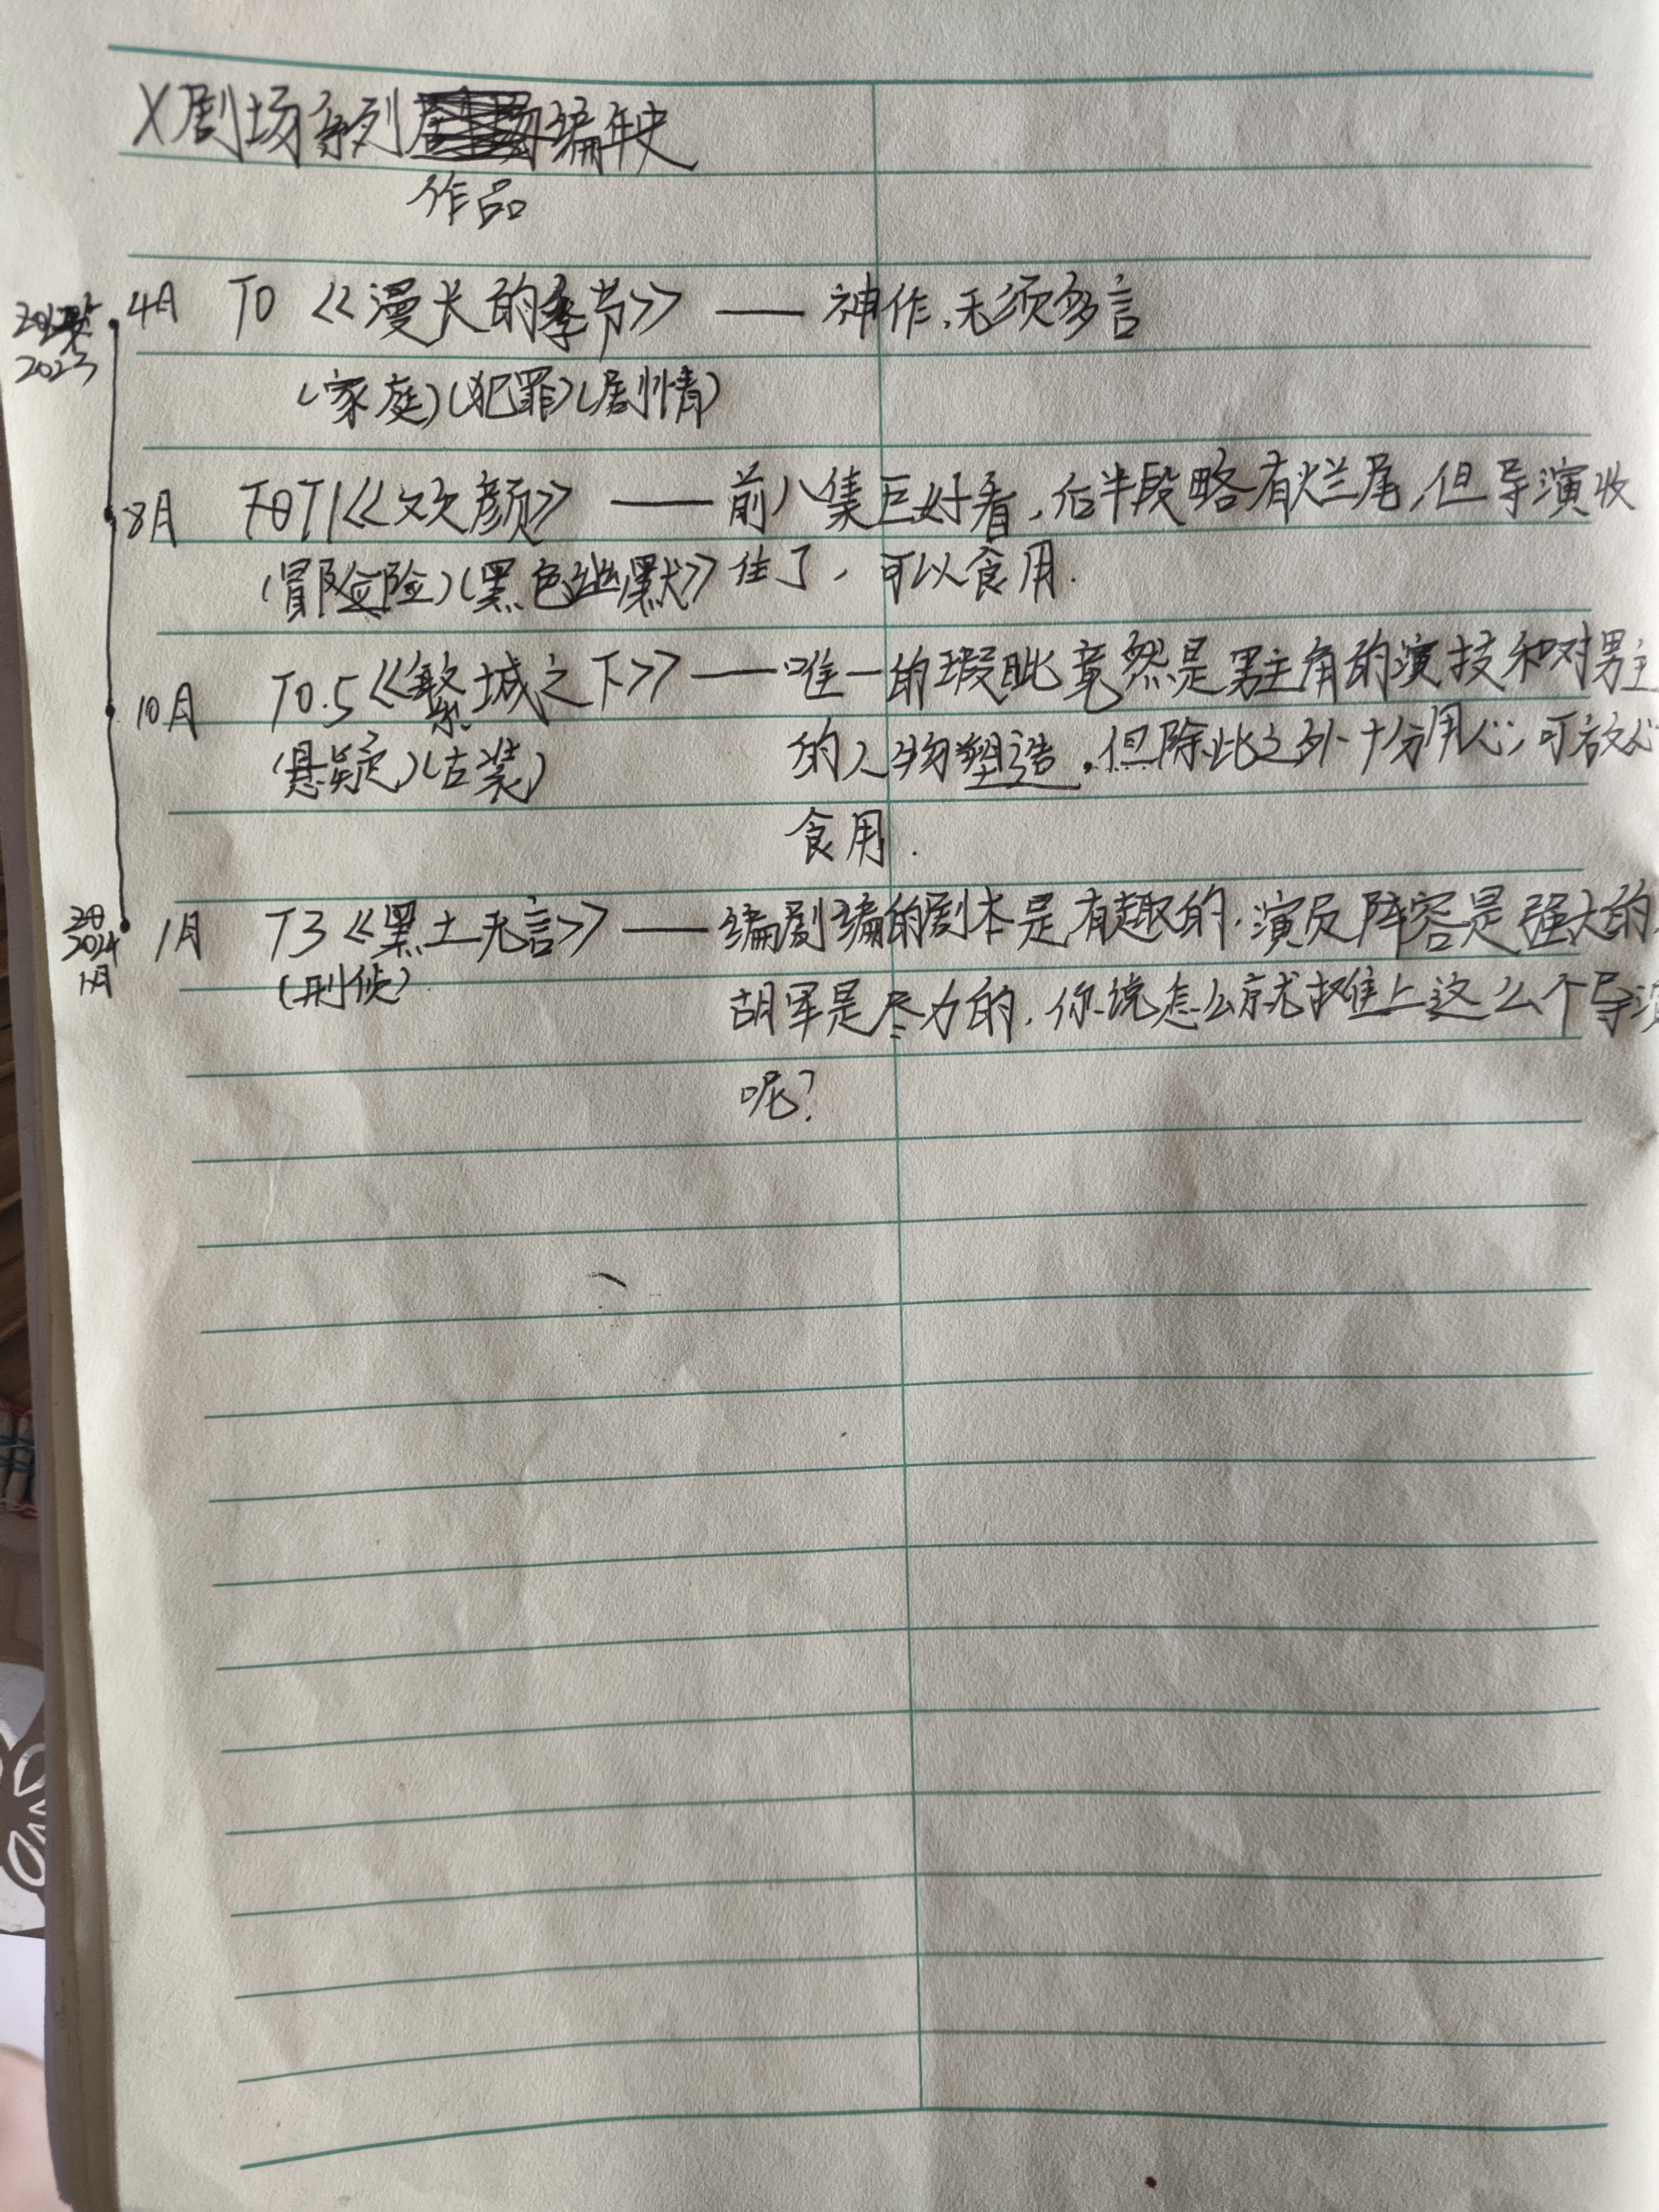 X剧场系列编年史
作品
4月 T0 《漫长的季节》 —— 神作,无须多言
2023
(家庭)(犯罪)(剧情)
8月 T1《欢颜》 —— 前八集巨好看,后半段略有烂尾,但导演收
(冒险)(黑色幽默》 住了, 可以食用.
10月 T0.5《繁城之下》 —— 唯一的瑕疵竟然是男主角的演技和对男主
(悬疑)(古装) 的人物塑造,但除此之外十分用心,可放心
食用.
2024 1月 T3《黑土无言》 —— 编剧编的剧本是有趣的,演员阵容是强大的,
1月 (刑侦) 胡军是尽力的,你说怎么就摊上这么个导演
呢?